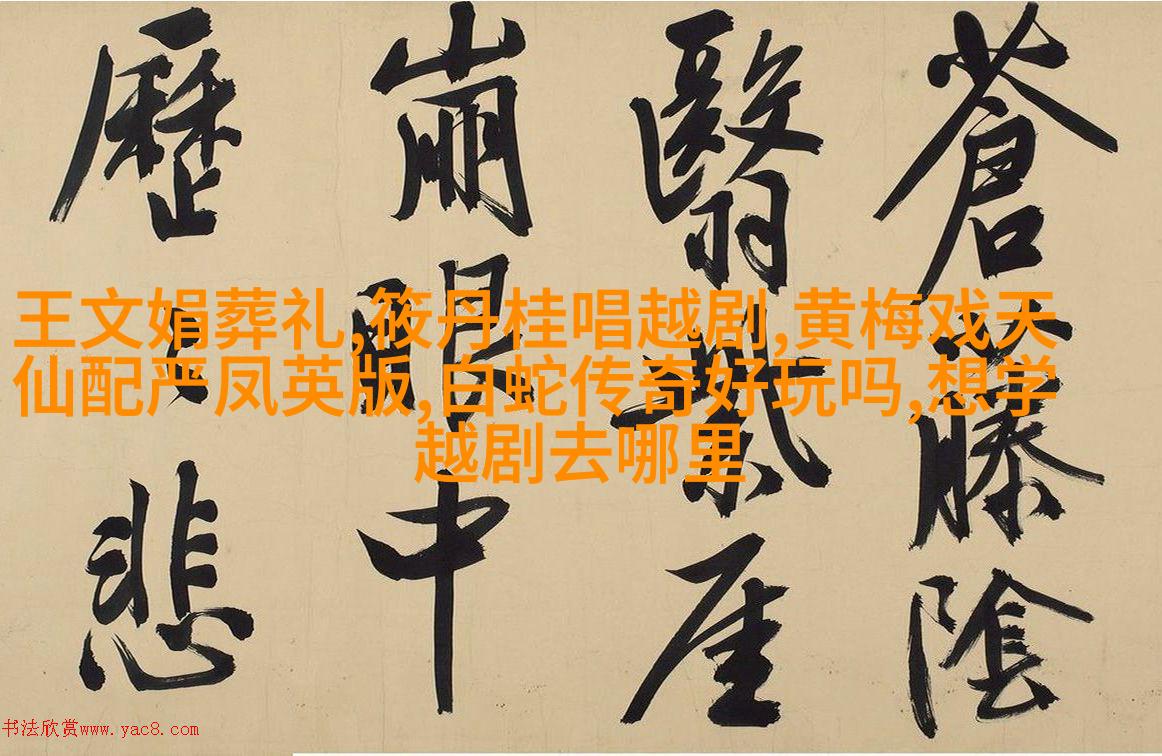 蒼藤陰
翳紫厓
崩眼中
歷々悲
王文娟葬礼,筱丹桂唱越剧,黄梅戏天
仙配严凤英版,白蛇传奇好玩吗,想学
越剧去哪里
书法欣赏www.yac8.com